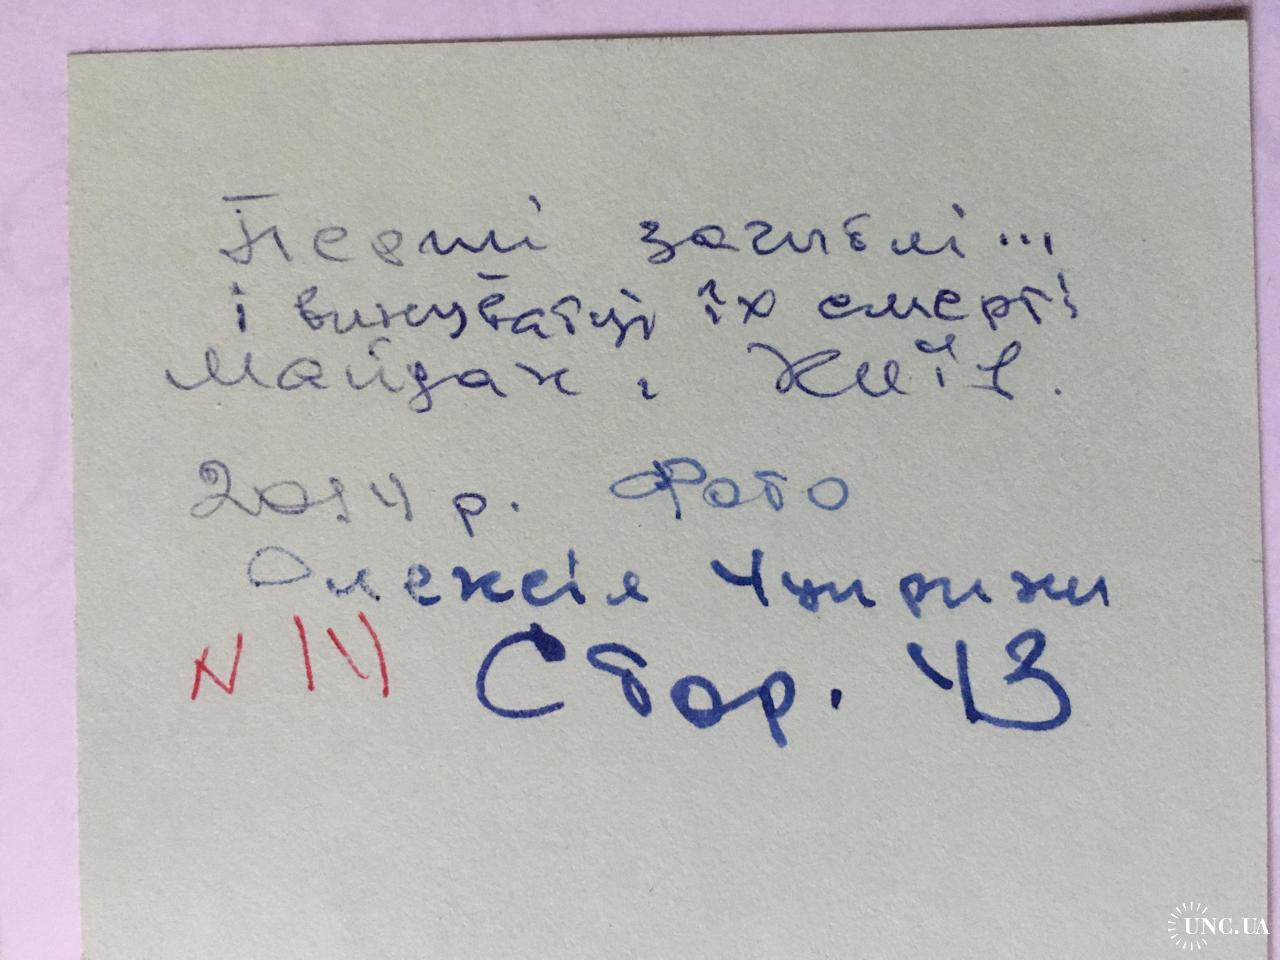 Перші загиблі...
і винуватці їх смерті
Майдан, Київ.
2014 р. Фото
Олексія Чумриги
N 14 Стор. 43
UNC.UA